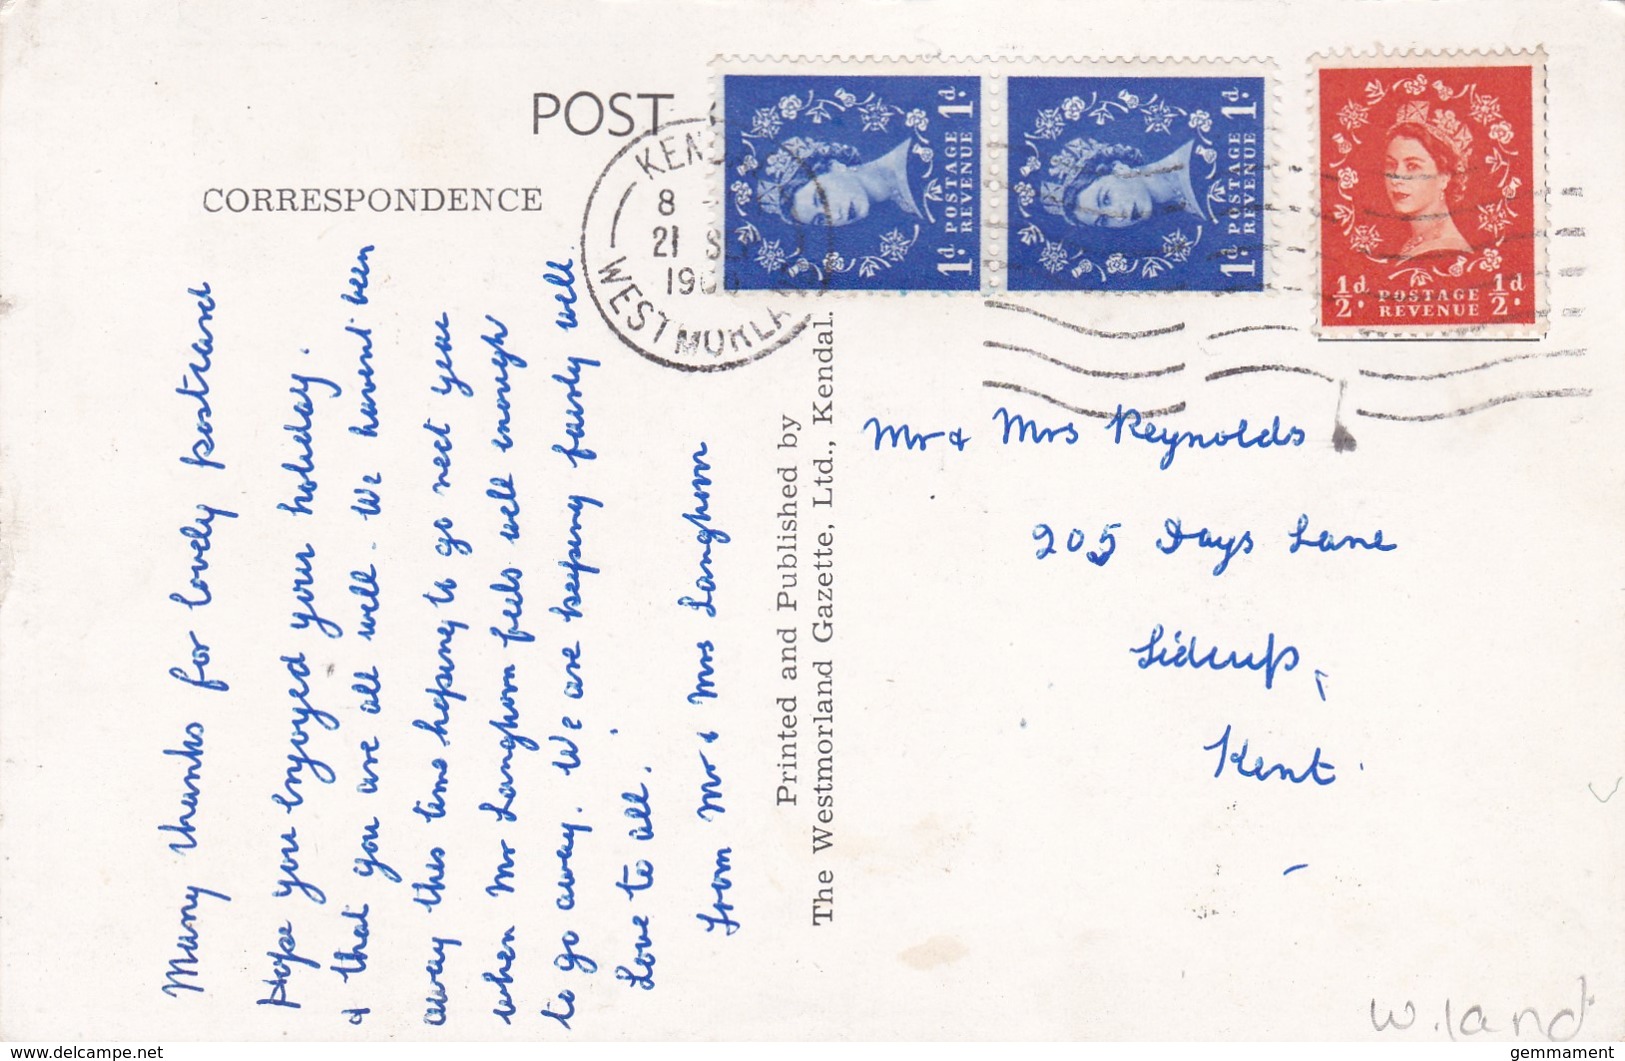 POST
CORRESPONDENCE
Many thanks for lovely postcard
Hope you enjoyed your holiday.
& that you are all well. We havent been
away this time hoping to go next year
when Mr Langhorn feels well enough
to go away. We are keeping fairly well.
Love to all.
From Mr & Mrs Langhorn
Printed and Published by
The Westmorland Gazette, Ltd., Kendal.
8
21 SEP
WESTMORLA
1d. POSTAGE REVENUE 1d.
1d. POSTAGE REVENUE 1d.
½d. POSTAGE REVENUE ½d.
Mr & Mrs Reynolds
205 Days Lane
Sidcup,
Kent.
W.land
delcampe.net
gemmament